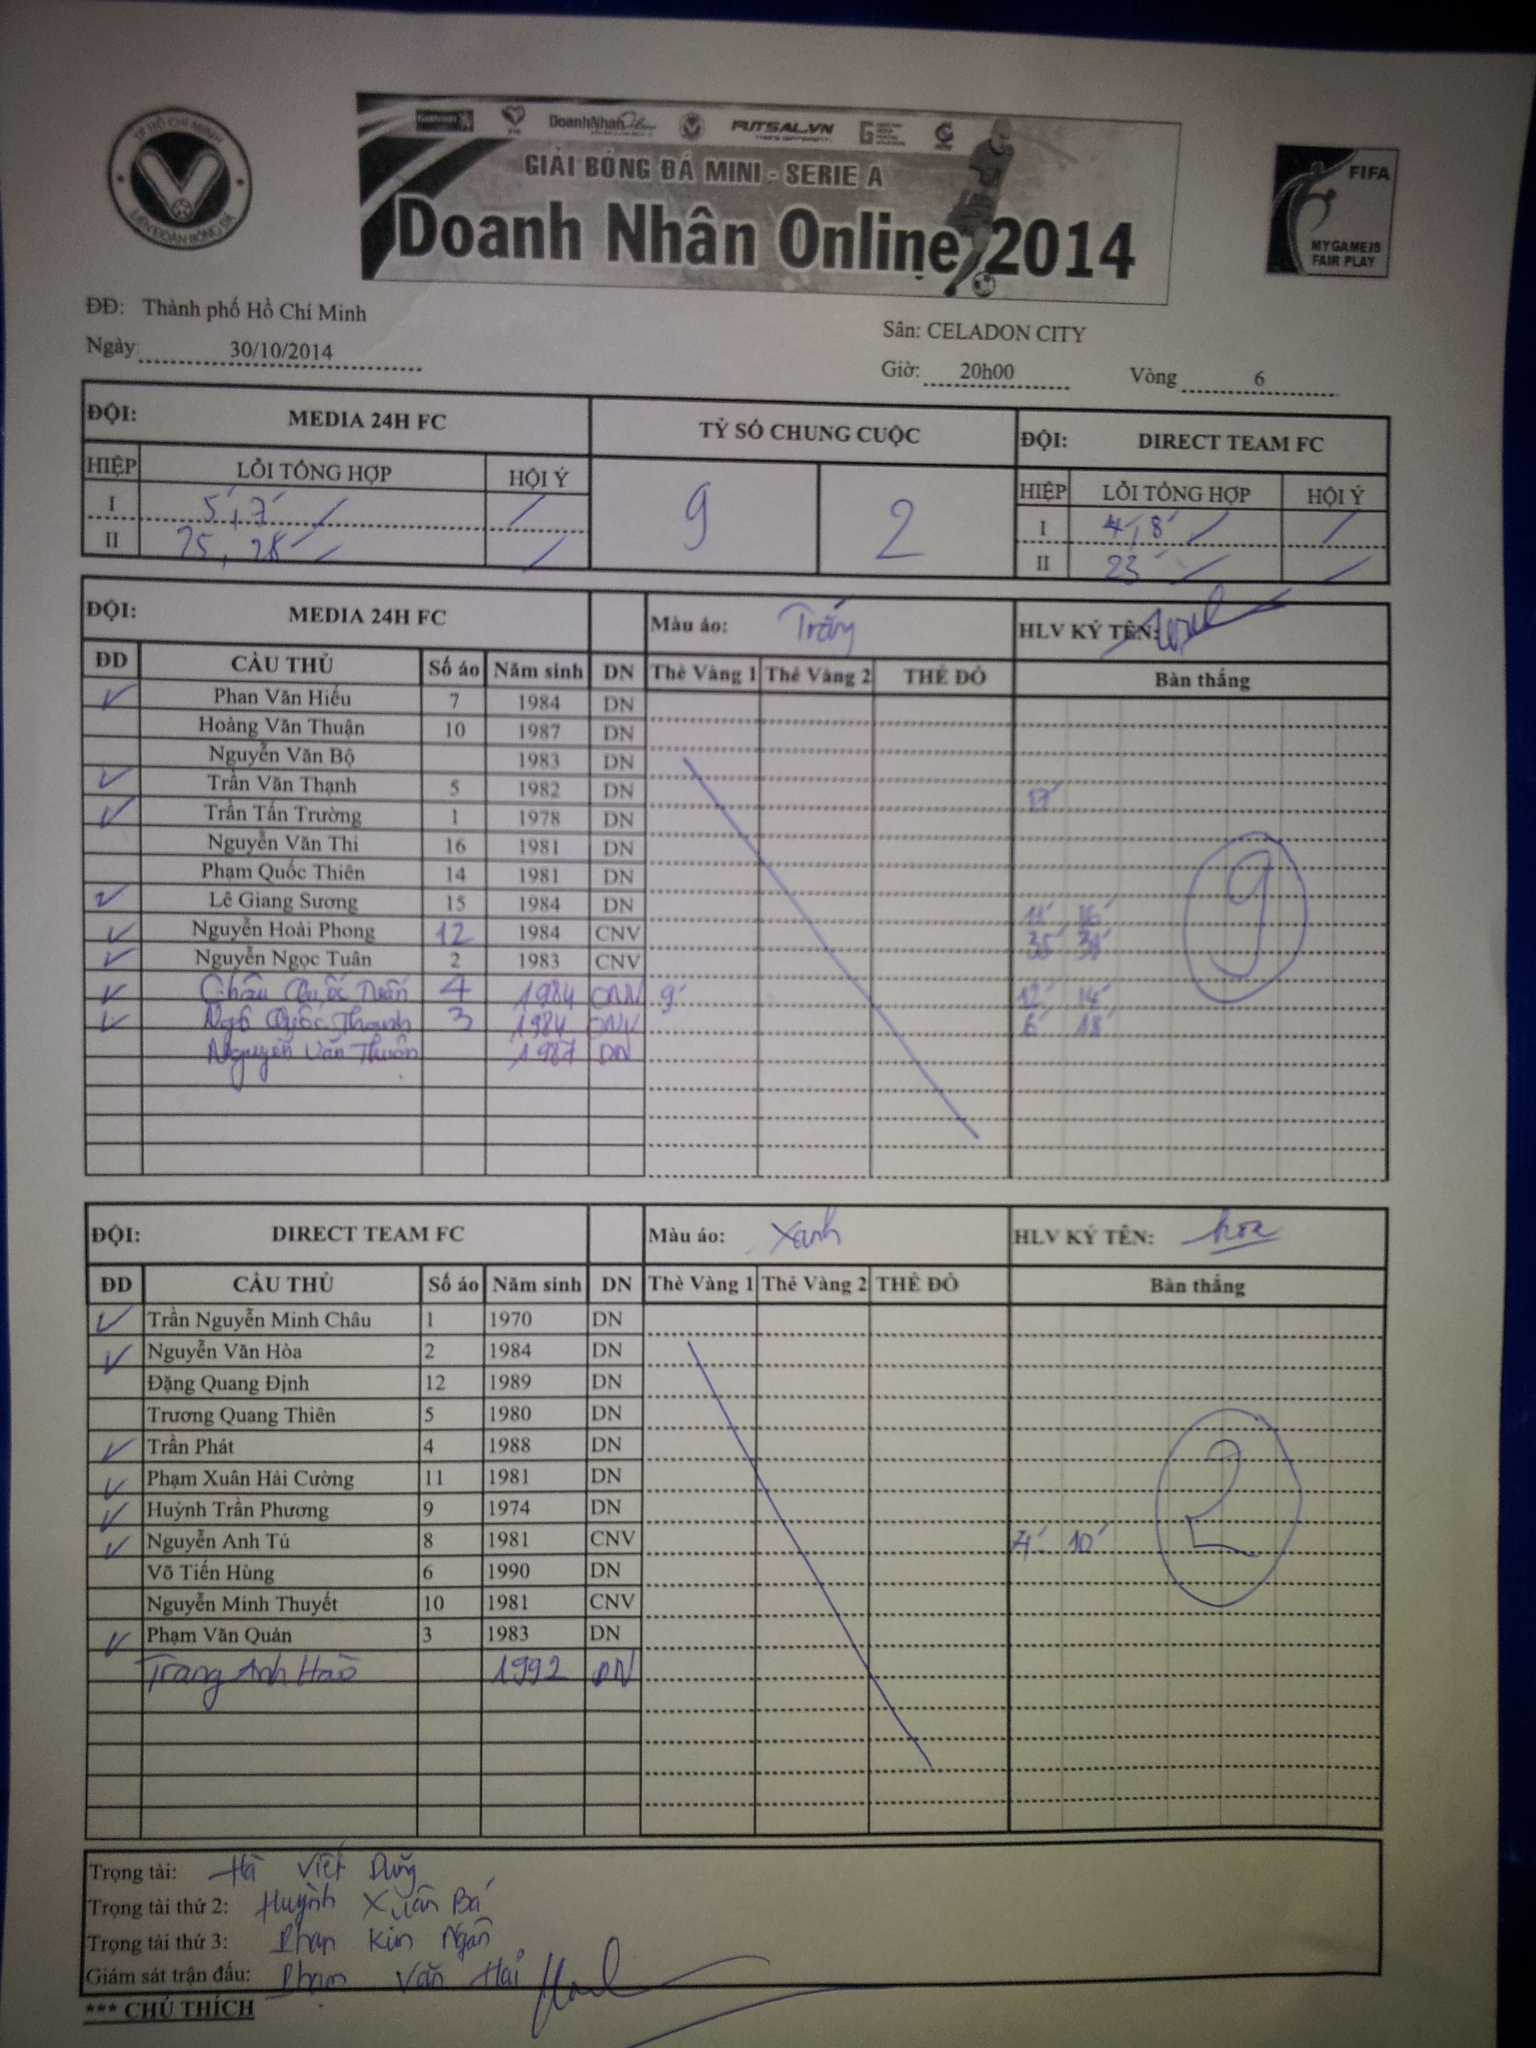 TP HỒ CHÍ MINH
LIÊN ĐOÀN BÓNG ĐÁ
DoanhNhanOnline FUTSAL.VN
GIẢI BÓNG ĐÁ MINI - SERIE A
Doanh Nhân Online 2014
FIFA
MY GAME IS
FAIR PLAY
ĐĐ: Thành phố Hồ Chí Minh
Sân: CELADON CITY
Ngày: 30/10/2014
Giờ: 20h00 Vòng 6
ĐỘI: MEDIA 24H FC TỶ SỐ CHUNG CUỘC ĐỘI: DIRECT TEAM FC
HIỆP LỖI TỔNG HỢP HỘI Ý 9 2 HIỆP LỖI TỔNG HỢP HỘI Ý
I 5', 7' / / I 4', 8' / /
II 25, 28' / / II 23' / /
ĐỘI: MEDIA 24H FC Màu áo: Trắng HLV KÝ TÊN:
ĐD CẦU THỦ Số áo Năm sinh DN Thẻ Vàng 1 Thẻ Vàng 2 THẺ ĐỎ Bàn thắng
✓ Phan Văn Hiếu 7 1984 DN
Hoàng Văn Thuận 10 1987 DN
Nguyễn Văn Bộ 1983 DN
✓ Trần Văn Thạnh 5 1982 DN 17'
✓ Trần Tấn Trường 1 1978 DN
Nguyễn Văn Thi 16 1981 DN
Phạm Quốc Thiên 14 1981 DN
✓ Lê Giang Sương 15 1984 DN 11' 16'
✓ Nguyễn Hoài Phong 12 1984 CNV 35' 38'
✓ Nguyễn Ngọc Tuân 2 1983 CNV
✓ Châu Quốc Tuấn 4 1984 CNV 9' 12' 14'
✓ Ngô Quốc Thạnh 3 1984 CNV 6' 18'
Nguyễn Văn Thuận 1987 DN
9
ĐỘI: DIRECT TEAM FC Màu áo: Xanh HLV KÝ TÊN: hoa
ĐD CẦU THỦ Số áo Năm sinh DN Thẻ Vàng 1 Thẻ Vàng 2 THẺ ĐỎ Bàn thắng
✓ Trần Nguyễn Minh Châu 1 1970 DN
✓ Nguyễn Văn Hòa 2 1984 DN
Đặng Quang Định 12 1989 DN
Trương Quang Thiên 5 1980 DN
✓ Trần Phát 4 1988 DN
✓ Phạm Xuân Hải Cường 11 1981 DN
✓ Huỳnh Trần Phương 9 1974 DN
✓ Nguyễn Anh Tú 8 1981 CNV 4' 10'
Võ Tiến Hùng 6 1990 DN
Nguyễn Minh Thuyết 10 1981 CNV
✓ Phạm Văn Quản 3 1983 DN
Trang Anh Hào 1992 DN
2
Trọng tài: Hà Việt Dũng
Trọng tài thứ 2: Huỳnh Xuân Bá
Trọng tài thứ 3: Phan Kim Ngân
Giám sát trận đấu: Phạm Văn Hải
*** CHÚ THÍCH